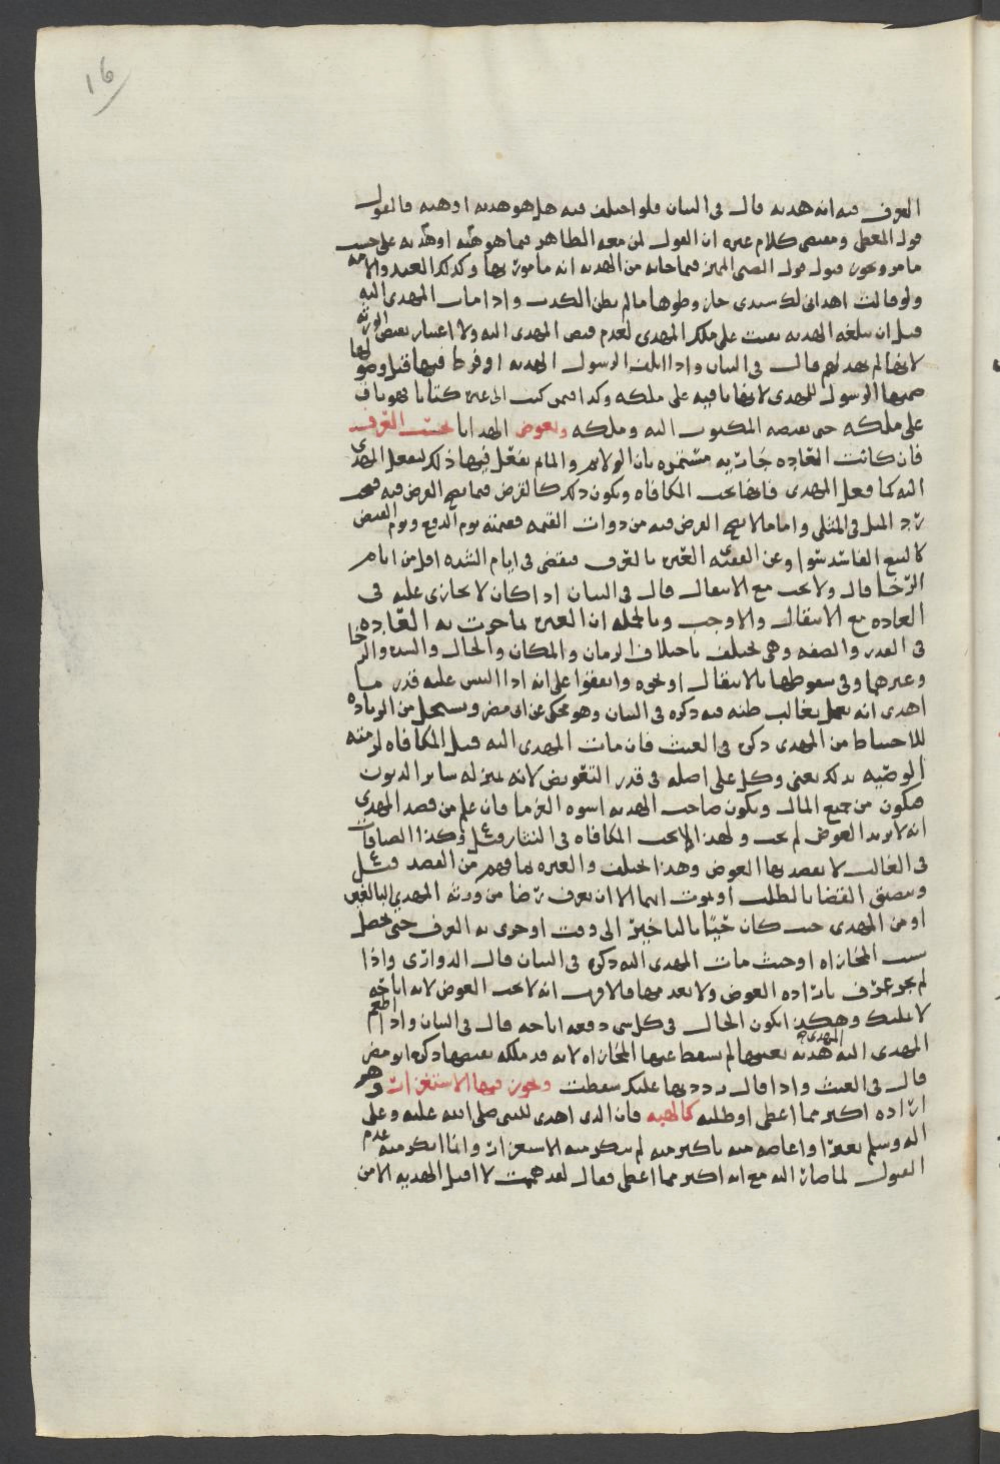 16
العرف فيه انه هديه قال في البيان فلو اختلف فيه هل هو هديه او هبه فالقول
قول المعطي ومقتضى كلام غيره ان القول لمن معه الظاهر فيما هو هبه او هديه على حسب
ما مر ويجوز قبول قول الصبي المميز فيما جا به من الهديه انه مامور بها وكذلك العبد والامه
ولو قالت اهداني لك سيدي جاز وطوها ما لم يظن الكذب واذا مات المهدى اليه
قبل ان تبلغه الهديه بقيت على ملك المهدي لعدم قبض المهدى اليه ولا اعتبار بقبض الورثه
لانها لم تهد لهم قال في البيان واذا اتلف الرسول الهديه او فرط فيها قبل وصولها
ضمنها الرسول للمهدي لانها باقيه على ملكه وكذا فيمن كتب الى غيره كتابا فهو باق
على ملكه حتى يقبضه المكتوب اليه وملكه وتعوض الهدايا بحسب العرف
فان كانت العاده جاريه مستمره بان الولايم والماتم يفعل فيها ذلك ليفعل المهدى
اليه كما فعل المهدي فانها تجب المكافاه ويكون ذلك كالقرض فيما يصح القرض فيه فيجب
رد المثل في المثلي واما ما لا يصح القرض فيه من ذوات القيمه فقيمته يوم الدفع ويوم القبض
كالبيع الفاسد سوا وعن الفقيه العبره بالعرف فيقضى في ايام الشده اقل من ايام
الرخا قال ولا تجب مع الانتقال قال في البيان اذا كان لا يجازى عليه في
العاده مع الانتقال والا وجب وبالجمله ان العبره بما جرت به العاده
في القدر والصفه وهي تختلف باختلاف الزمان والمكان والحال والشده والرخا
وغيرهما وفي سقوطها بالانتقال او نحوه واتفقوا على انه اذا التبس عليه قدر ما
اهدي انه يعمل بغالب ظنه فيه ذكره في البيان وهو محكي عن ابي مضر ويستحل من الزياده
للاحتياط من المهدي ذكره في الغيث فان مات المهدى اليه قبل المكافاه لزمته
الوصيه بذلك يعني وكل على اصله في قدر التعويض لانه بمنزله ساير الديون
فيكون من جميع المال ويكون صاحب الهديه اسوه الغرما فان علم من قصد المهدي
انه لا يريد العوض لم يجب ولهذا لا يجب المكافاه في النثار وكذا الضيافات
في الغالب لا يقصد بها العوض وهذا يختلف والعبره بما فهم من القصد
ويضيق القضا بالطلب او بموت ايهما الا ان يعرف رضا من ورثه المهدي البالغين
او من المهدي حيث كان حيّا بالتاخير الى وقت او جرى به العرف حتى يحصل
سبب المجازاه او حيث مات المهدى اليه ذكره في البيان قال الدواري واذا
لم يجر عرف باراده العوض ولا بعدمها فالاقرب انه لا يجب العوض لانه اباحه
لا تمليك وهكذا يكون الحال في كل شي دفعه اباحه قال في البيان واذا اطعم
المهدى اليه المهدي هديه بعينها لم يسقط عنها المجازاه لانه قد ملكه بقبضها ذكره ابو مضر
قال في الغيث واذا قال رددتها عليك سقطت ويجوز فيها الاستغزار وهو
اراده اكثر مما اعطى او طلبه كالهبه فان الذي اهدى للنبي صلى الله عليه وعلى
اله وسلم بعيرا واعاضه منه باكثر منه لم ينكر منه الاستغزار وانما انكر منه عدم
القبول لما صار اليه مع انه اكثر مما اعطى فقال لقد هممت لا اقبل الهديه الا من